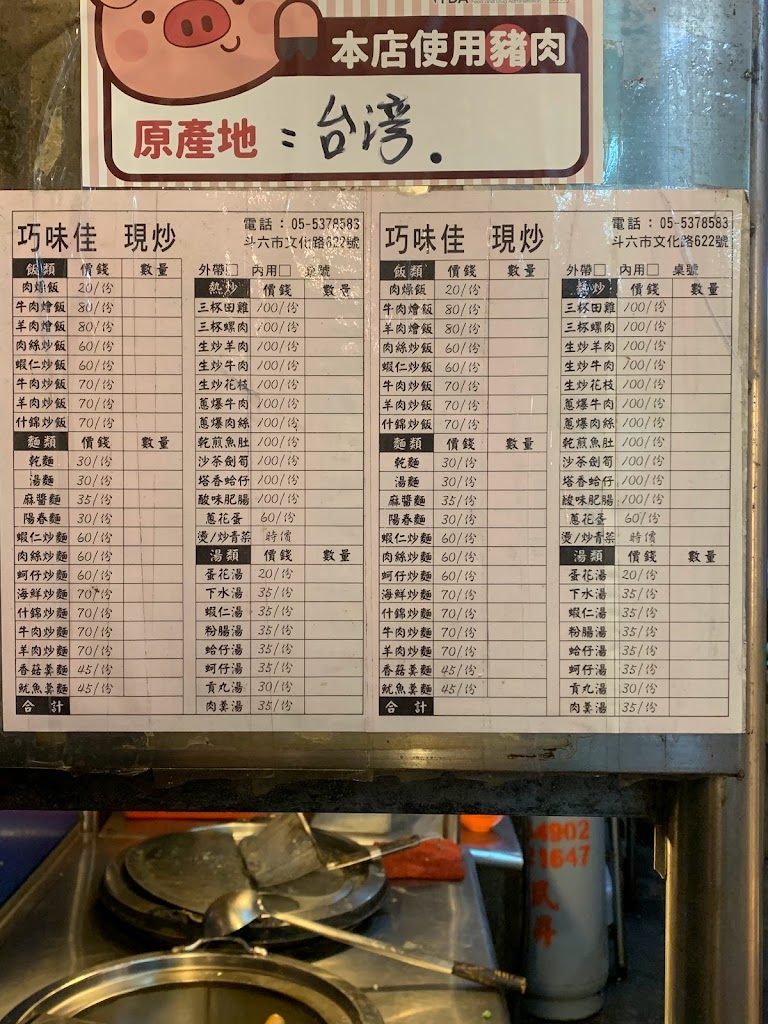 本店使用豬肉
原產地：台湾.
巧味佳 現炒
電話：05-5378583
斗六市文化路622號
飯類 價錢 數量
肉燥飯 20/份
牛肉燴飯 80/份
羊肉燴飯 80/份
肉絲炒飯 60/份
蝦仁炒飯 60/份
牛肉炒飯 70/份
羊肉炒飯 70/份
什錦炒飯 70/份
麵類 價錢 數量
乾麵 30/份
湯麵 30/份
麻醬麵 35/份
陽春麵 30/份
蝦仁炒麵 60/份
肉絲炒麵 60/份
蚵仔炒麵 60/份
海鮮炒麵 70/份
什錦炒麵 70/份
牛肉炒麵 70/份
羊肉炒麵 70/份
香菇羹麵 45/份
魷魚羹麵 45/份
合計
外帶□ 內用□ 桌號
熱炒 價錢 數量
三杯田雞 100/份
三杯螺肉 100/份
生炒羊肉 100/份
生炒牛肉 100/份
生炒花枝 100/份
蔥爆牛肉 100/份
蔥爆肉絲 100/份
乾煎魚肚 100/份
沙茶劍筍 100/份
塔香蛤仔 100/份
酸味肥腸 100/份
蔥花蛋 60/份
燙/炒青菜 時價
湯類 價錢 數量
蛋花湯 20/份
下水湯 35/份
蝦仁湯 35/份
粉腸湯 35/份
蛤仔湯 35/份
蚵仔湯 35/份
貢丸湯 30/份
肉羹湯 35/份
巧味佳 現炒
電話：05-5378583
斗六市文化路622號
飯類 價錢 數量
肉燥飯 20/份
牛肉燴飯 80/份
羊肉燴飯 80/份
肉絲炒飯 60/份
蝦仁炒飯 60/份
牛肉炒飯 70/份
羊肉炒飯 70/份
什錦炒飯 70/份
麵類 價錢 數量
乾麵 30/份
湯麵 30/份
麻醬麵 35/份
陽春麵 30/份
蝦仁炒麵 60/份
肉絲炒麵 60/份
蚵仔炒麵 60/份
海鮮炒麵 70/份
什錦炒麵 70/份
牛肉炒麵 70/份
羊肉炒麵 70/份
香菇羹麵 45/份
魷魚羹麵 45/份
合計
外帶□ 內用□ 桌號
熱炒 價錢 數量
三杯田雞 100/份
三杯螺肉 100/份
生炒羊肉 100/份
生炒牛肉 100/份
生炒花枝 100/份
蔥爆牛肉 100/份
蔥爆肉絲 100/份
乾煎魚肚 100/份
沙茶劍筍 100/份
塔香蛤仔 100/份
酸味肥腸 100/份
蔥花蛋 60/份
燙/炒青菜 時價
湯類 價錢 數量
蛋花湯 20/份
下水湯 35/份
蝦仁湯 35/份
粉腸湯 35/份
蛤仔湯 35/份
蚵仔湯 35/份
貢丸湯 30/份
肉羹湯 35/份
4902
21647